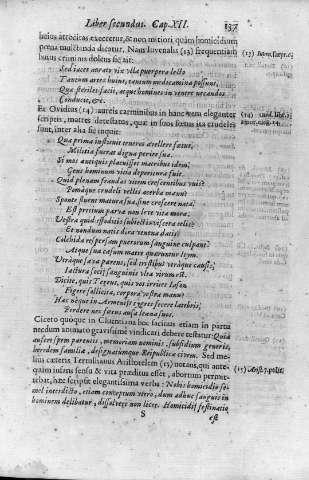 Liber secundus. Cap. XII. 137
huius atrocitas execretur, & non mitiori, quàm homicidium
pena mulctanda dicatur. Nam Iuvenalis (13) frequentiam
huius criminis dolens sic ait:
Sed iacet aurato vix ulla puerpera lecto
Tantum artes huius, tantum medicamina possunt,
Quæ steriles facit, atque homines in ventre necandos
Conducit, &c.
Et Ovidius (14) aureis carminibus in hanc rem eleganter
scriptis, matres detestatur, quæ in suos fœtus ita crudeles
sunt, inter alia sic inquit:
Qua prima instituit teneros avellere fœtus,
Militia fuerat digna perire sua.
Si mos antiquis placuisset matribus idem,
Gens hominum vitio deperitura fuit.
Quid plenam fraudas vitem crescentibus vuis?
Pomáque crudeli vellis acerba manu?
Sponte fluent matura sua, sine crescere nata.
Est pretium parva non leve vita mora.
Vestra quid effoditis subiectis viscera telis?
Et nondum natis dira venena datis?
Colchida respersam puerorum sanguine culpant?
Atque sua cæsum matre queruntur Ityn.
Vtráque sæva parens, sed tristibus vtráque causis,
Iactura socij sanguinis vlta virum est.
Dicite, quis Tereus, quis vos irritet Iason
Figere sollicita, corpora vestra manu?
Hac neque in Armenijs tigres fecere latebris;
Perdere nec fœtus ausa leæna suos.
Cicero quoque in Cluentina hoc facinus etiam in parta
nedum animato gravissimè vindicari debere testatur: Quia
aufert spem parentis, memoriam nominis, subsidium generis,
hæredem familiæ, designatumque Reipublicæ civem. Sed me-
lius cæteris Tertulianus Aristotelem (15) notans, qui ante-
quàm infans sensu & vita præditus esset, abortum permit-
tebat, hæc scripsit elegantissima verba: Nobis homicidio se-
mel interdicto, etiam conceptum vtero, dum adhuc sanguis in
hominem delibatur, dissolvere non licet. Homicidij festinatio
S est
(13)
(14)
(15) Arist. 7. polit.